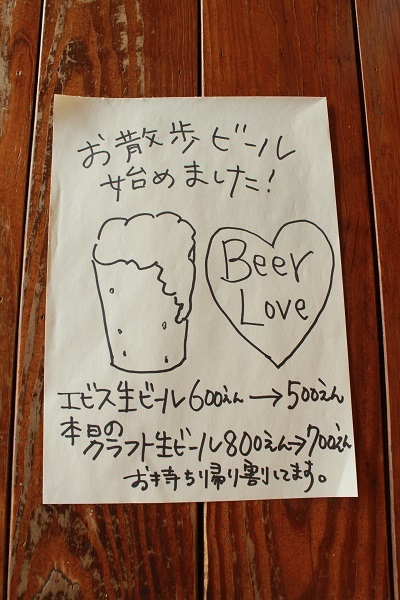 お散歩ビール
始めました!
Beer
Love
エビス生ビール600えん→500えん
本日の
クラフト生ビール800えん→700えん
お持ち帰り割してます。